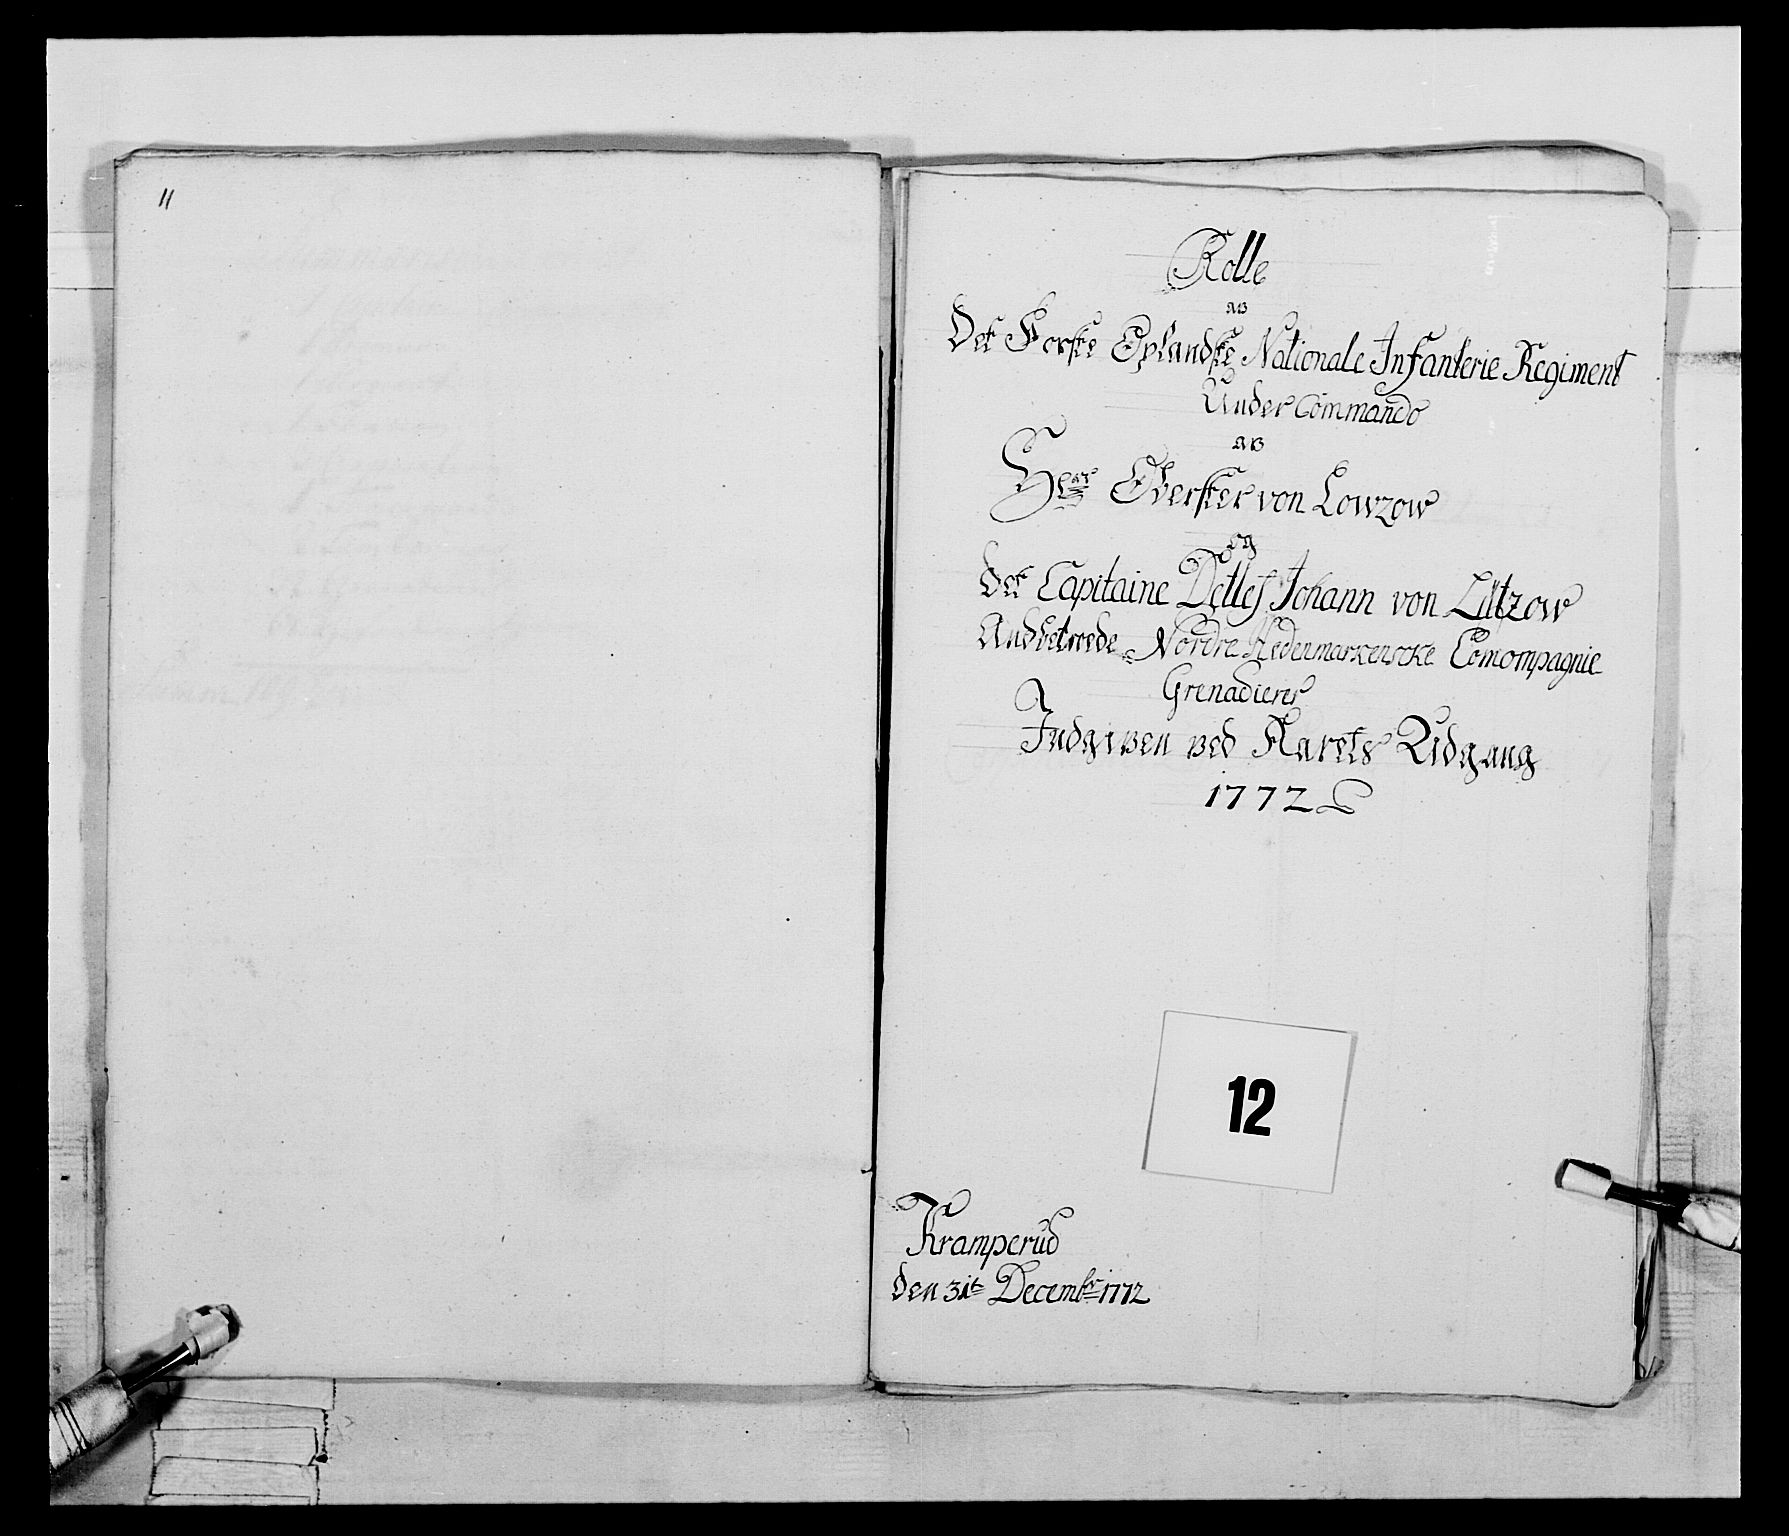 11
Rolle
av
Det Første Oplandske Nationale Infanterie Regiment
Under Commando
av
Herr Oberster von Lowzow
og
Det Capitaine Detlef Johann von Lützow
Andbetroede Nordre Hedemarkenske Comompagnie
Grenadierer
Indgiven ved Aarets Udgang
1772
12
Kramperud
den 31te Decembr 1772